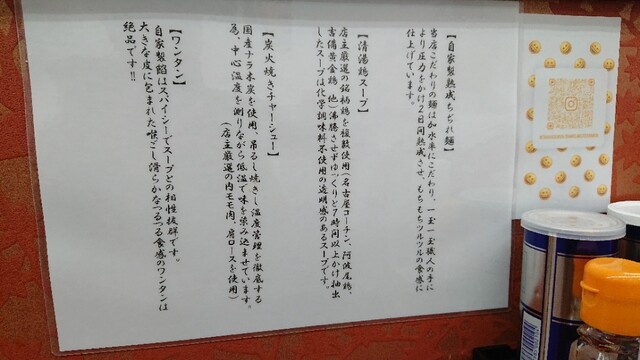 【自家製熟成ちぢれ麺】
当店こだわりの麺は加水率にこだわり、一玉一玉職人の手に
より圧力をかけ2日間熟成させ、もちもちツルツルの食感に
仕上げています。
【清湯鶏スープ】
店主厳選の銘柄鶏を複数使用(名古屋コーチン、阿波尾鶏、
吉備黄金鶏 他)沸騰させずゆっくりと7時間以上かけ抽出
したスープは化学調味料不使用の透明感のあるスープです。
【炭火焼きチャーシュー】
国産ナラ木炭を使用、吊るし焼きし温度管理を徹底する
為、中心温度を測りながら低温で味を染み込ませています。
(店主厳選の内モモ肉、肩ロースを使用)
【ワンタン】
自家製餡はスパイシーでスープとの相性抜群です。
大きな皮に包まれた喉ごし滑らかなつるつる食感のワンタンは
絶品です!!